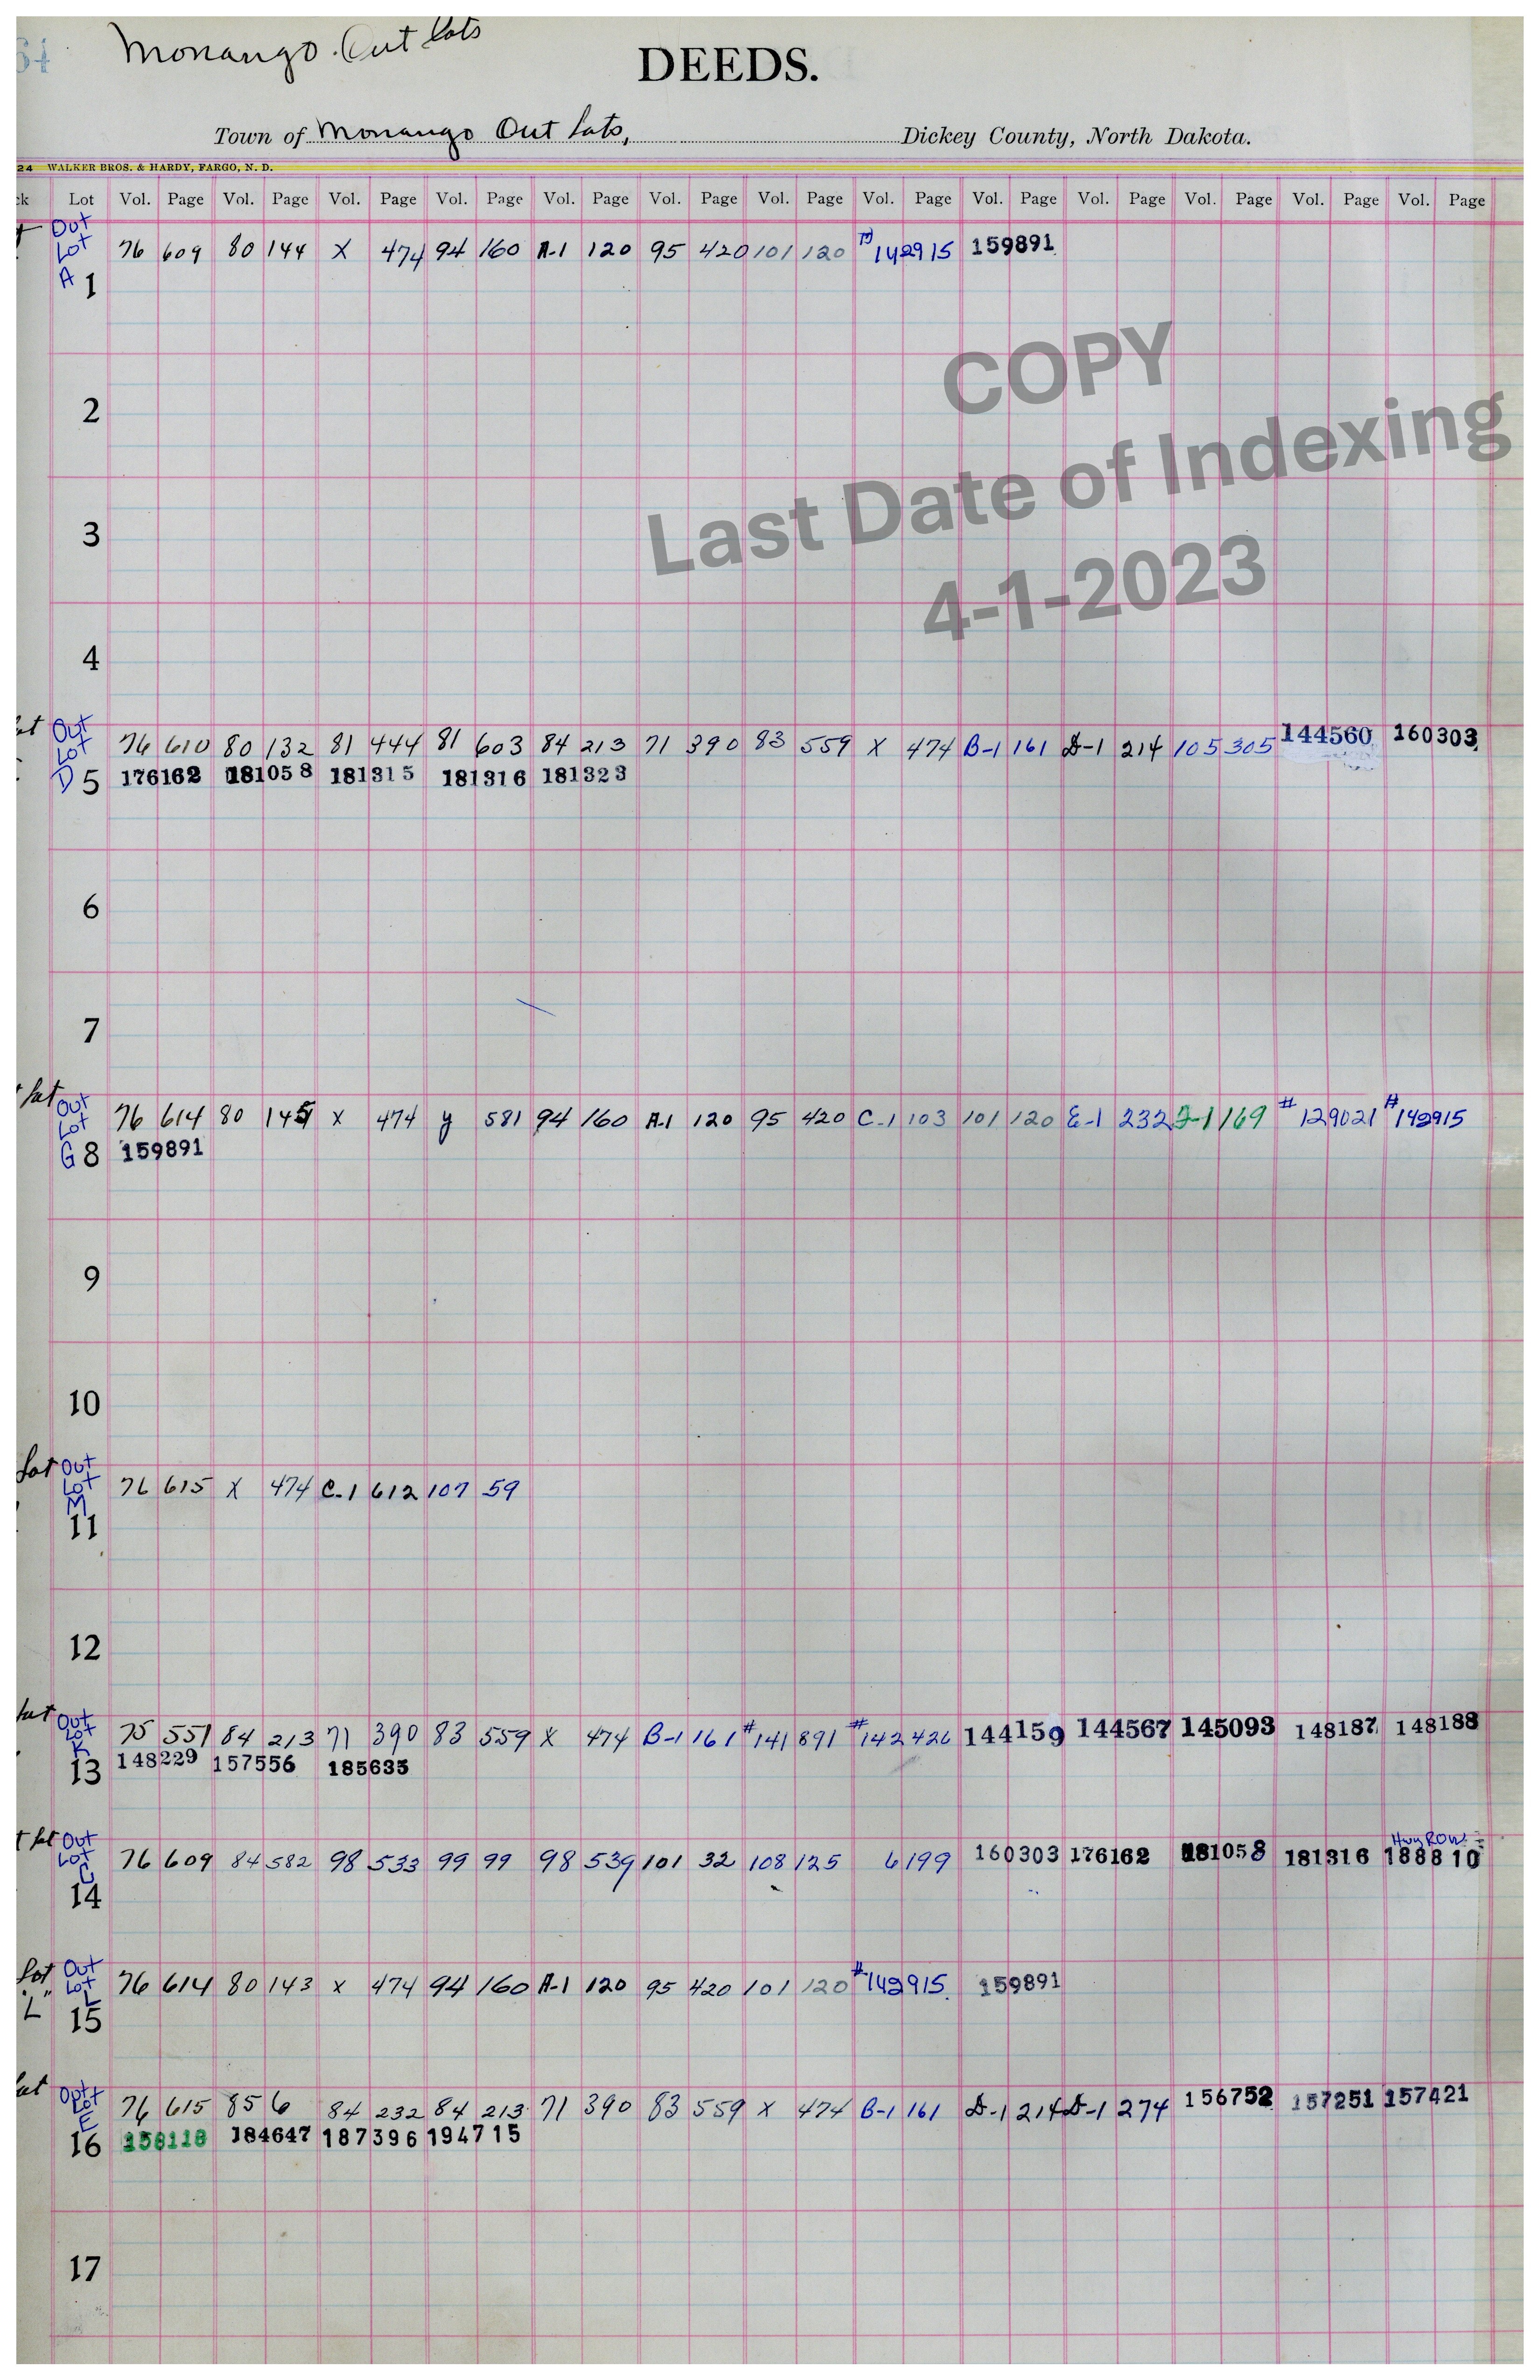 64 Monango Out lots
DEEDS.
Town of Monango Out Lots, Dickey County, North Dakota.
24 WALKER BROS. & HARDY, FARGO, N. D.
ck Lot Vol. Page Vol. Page Vol. Page Vol. Page Vol. Page Vol. Page Vol. Page Vol. Page Vol. Page Vol. Page Vol. Page Vol. Page Vol. Page
Out
Lot 76 609 80 144 X 474 94 160 A-1 120 95 420 101 120 142915 159891
A 1
COPY
2
Last Date of Indexing
3
4-1-2023
4
Out
Lot 76 610 80 132 81 444 81 603 84 213 71 390 83 559 X 474 B-1 161 D-1 214 105 305 144560 160303
D 5 176162 181058 181315 181316 181323
6
7
lot Out
Lot 76 614 80 145 X 474 y 581 94 160 A-1 120 95 420 C-1 103 101 120 E-1 232 169 # 129021 # 142915
G 8 159891
9
10
Lot Out
Lot 76 615 X 474 C-1 612 107 59
M
11
12
lot Out
Lot 75 551 84 213 71 390 83 559 X 474 B-1 161 # 141891 # 142426 144159 144567 145093 148187 148188
K
13 148229 157556 185635
t lot Out Hwy ROW
Lot 76 609 84 582 98 533 99 99 98 539 101 32 108 125 6 199 160303 176162 181058 181316 188810
C
14
Lot Out
"L" Lot 76 614 80 143 X 474 94 160 A-1 120 95 420 101 120 # 142915 159891
L
15
Out
Lot 76 615 85 6 84 232 84 213 71 390 83 559 X 474 B-1 161 D-1 214 D-1 274 156752 157251 157421
E
16 158118 184647 187396 194715
17